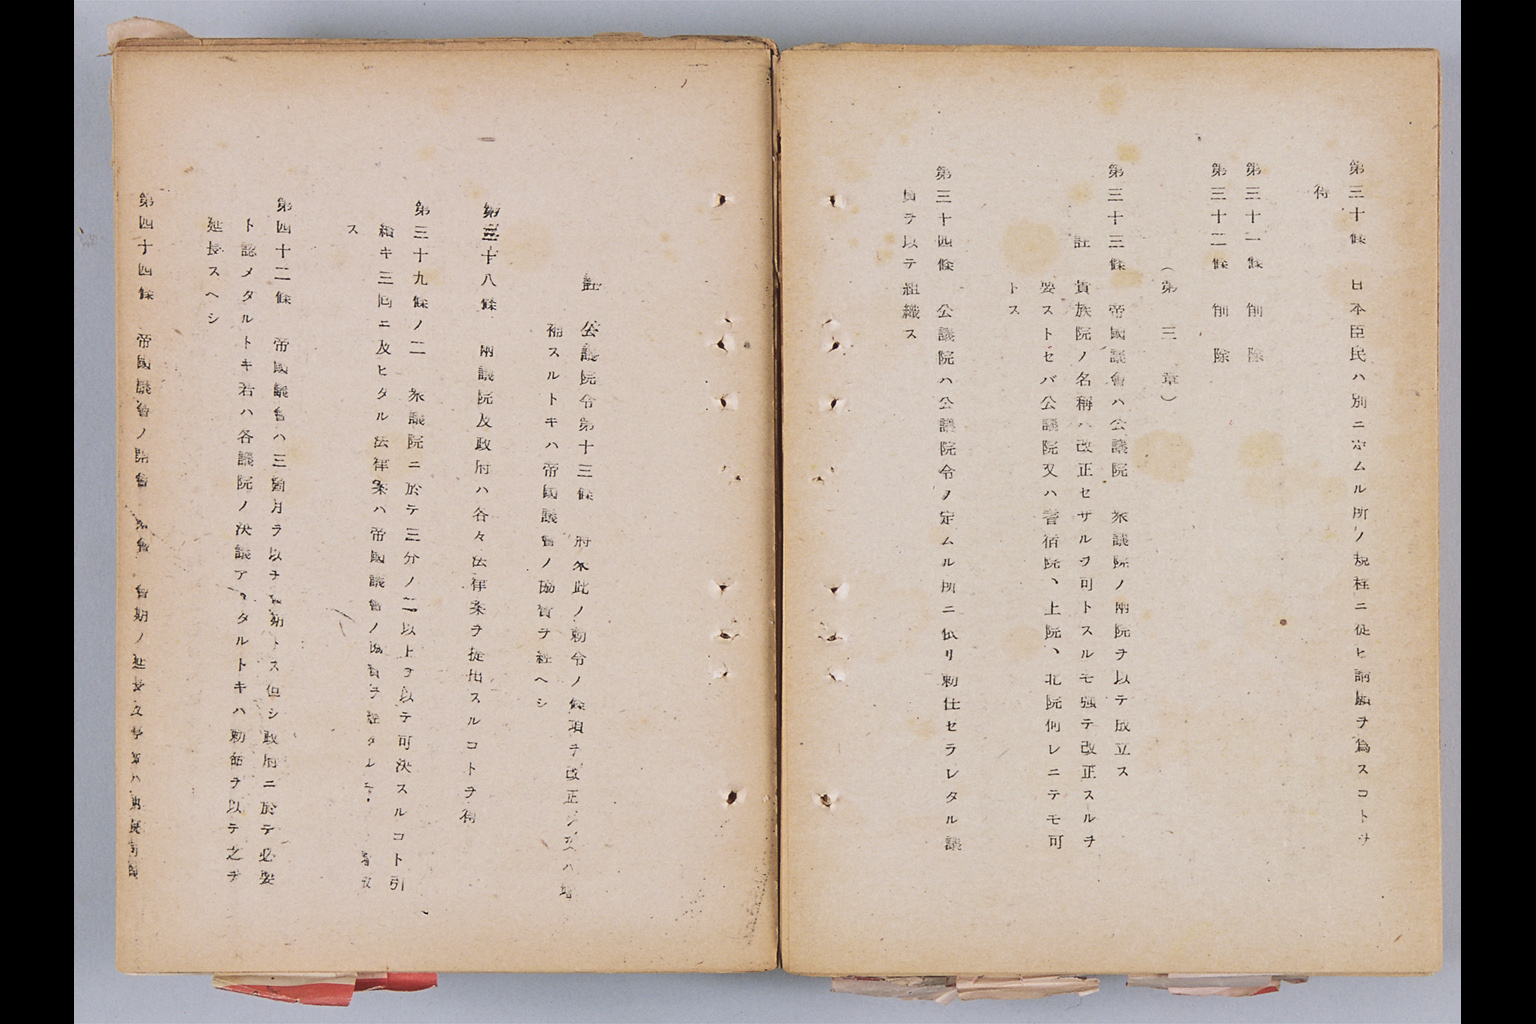 第三十條　日本臣民ハ別ニ定ムル所ノ規程ニ從ヒ請願ヲ爲スコトヲ
得
第三十一條　削除
第三十二條　削除
（第三章）
第三十三條　帝國議會ハ公議院　衆議院ノ兩院ヲ以テ成立ス
註　貴族院ノ名稱ハ改正セザルヲ可トスルモ强テ改正スルヲ
要ストセバ公議院又ハ耆宿院、上院、北院何レニテモ可
トス
第三十四條　公議院ハ公議院令ノ定ムル所ニ依リ勅任セラレタル議
員ヲ以テ組織ス
註　公議院令第十三條　將來此ノ勅令ノ條項ヲ改正シ又ハ增
補スルトキハ帝國議會ノ協贊ヲ經ヘシ
第三十八條　兩議院及政府ハ各々法律案ヲ提出スルコトヲ得
第三十九條ノ二　衆議院ニ於テ三分ノ二以上ヲ以テ可決スルコト引
續キ三囘ニ及ヒタル法律案ハ帝國議會ノ協贊ヲ經タル
ス
第四十二條　帝國議會ハ三箇月ヲ以テ會期トス但シ政府ニ於テ必要
ト認メタルトキ若ハ各議院ノ決議アリタルトキハ勅命ヲ以テ之ヲ
延長スヘシ
第四十四條　帝國議會ノ開會　閉會　會期ノ延長及